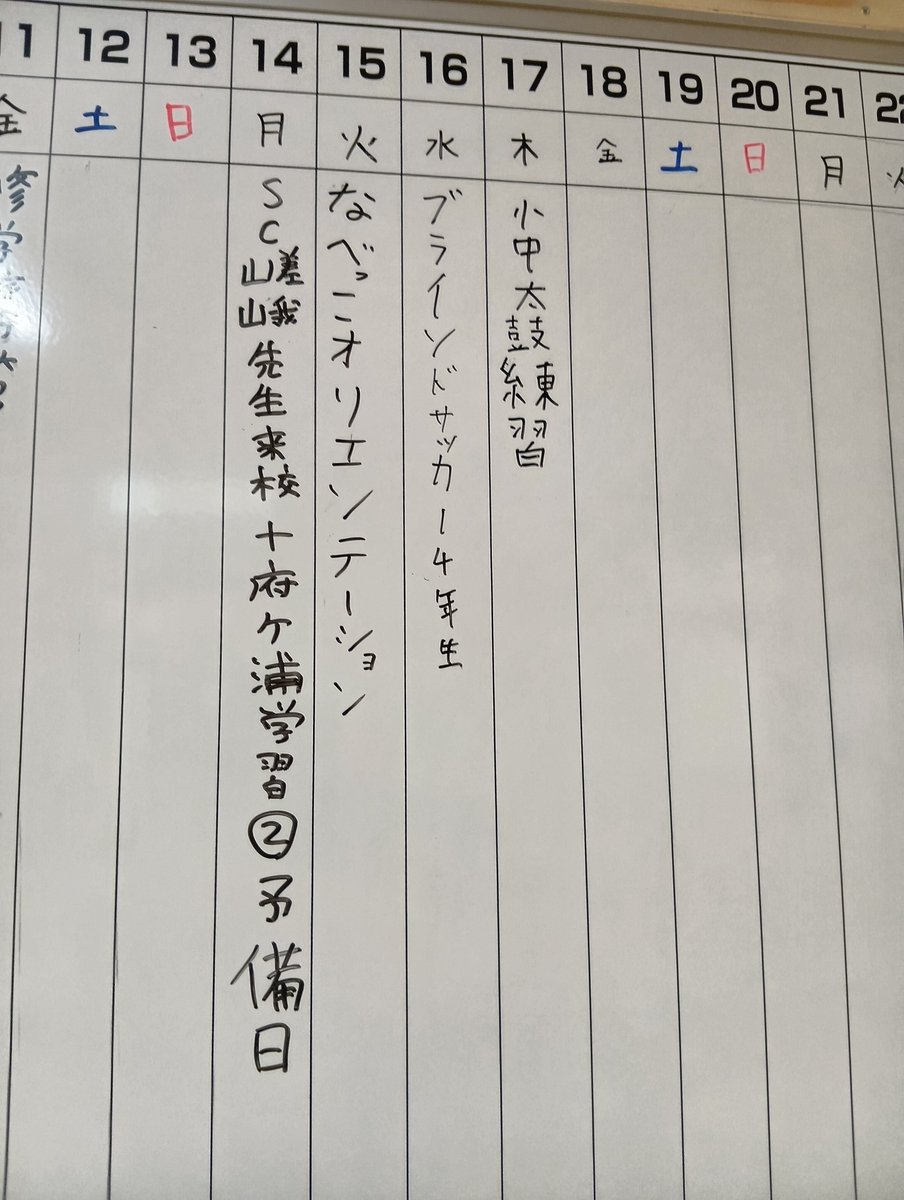 11 12 13 14 15 16 17 18 19 20 21 22
金 土 日 月 火 水 木 金 土 日 月 火
修学
SC嵯峨先生来校十府ケ浦学習②予備日
なべっこオリエンテーション
ブラインドサッカー4年生
小中太鼓練習